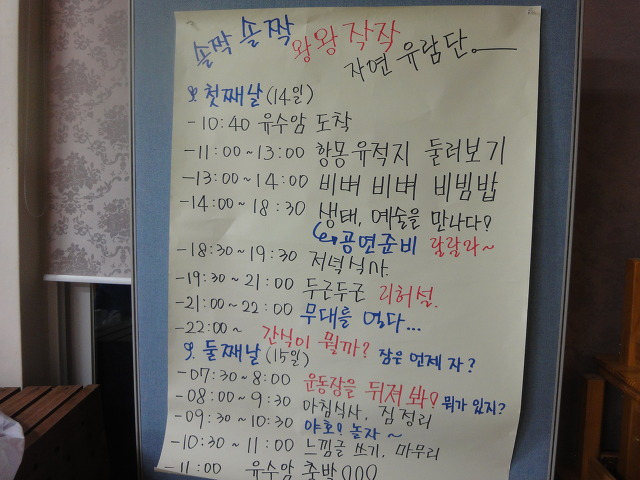 솔짝 솔짝 왕왕 작작
자연 유람단.
첫째날 (14일)
- 10:40 유수암 도착
- 11:00 ~ 13:00 항몽유적지 둘러보기
- 13:00 ~ 14:00 비벼 비벼 비빔밥
- 14:00 ~ 18:30 생태, 예술을 만나다?
공연준비 랄랄라~
- 18:30 ~ 19:30 저녁식사.
- 19:30 ~ 21:00 두근두근 리허설.
- 21:00 ~ 22:00 무대를 열다...
- 22:00 ~ 간식이 뭘까? 잠은 언제 자?
둘째날 (15일)
- 07:30 ~ 8:00 운동장을 뒤져 봐? 뭐가 있지?
- 08:00 ~ 9:30 아침식사, 짐정리
- 09:30 ~ 10:30 야호! 놀자 ~
- 10:30 ~ 11:00 느낌글 쓰기, 마무리
- 11:00 유수암 출발